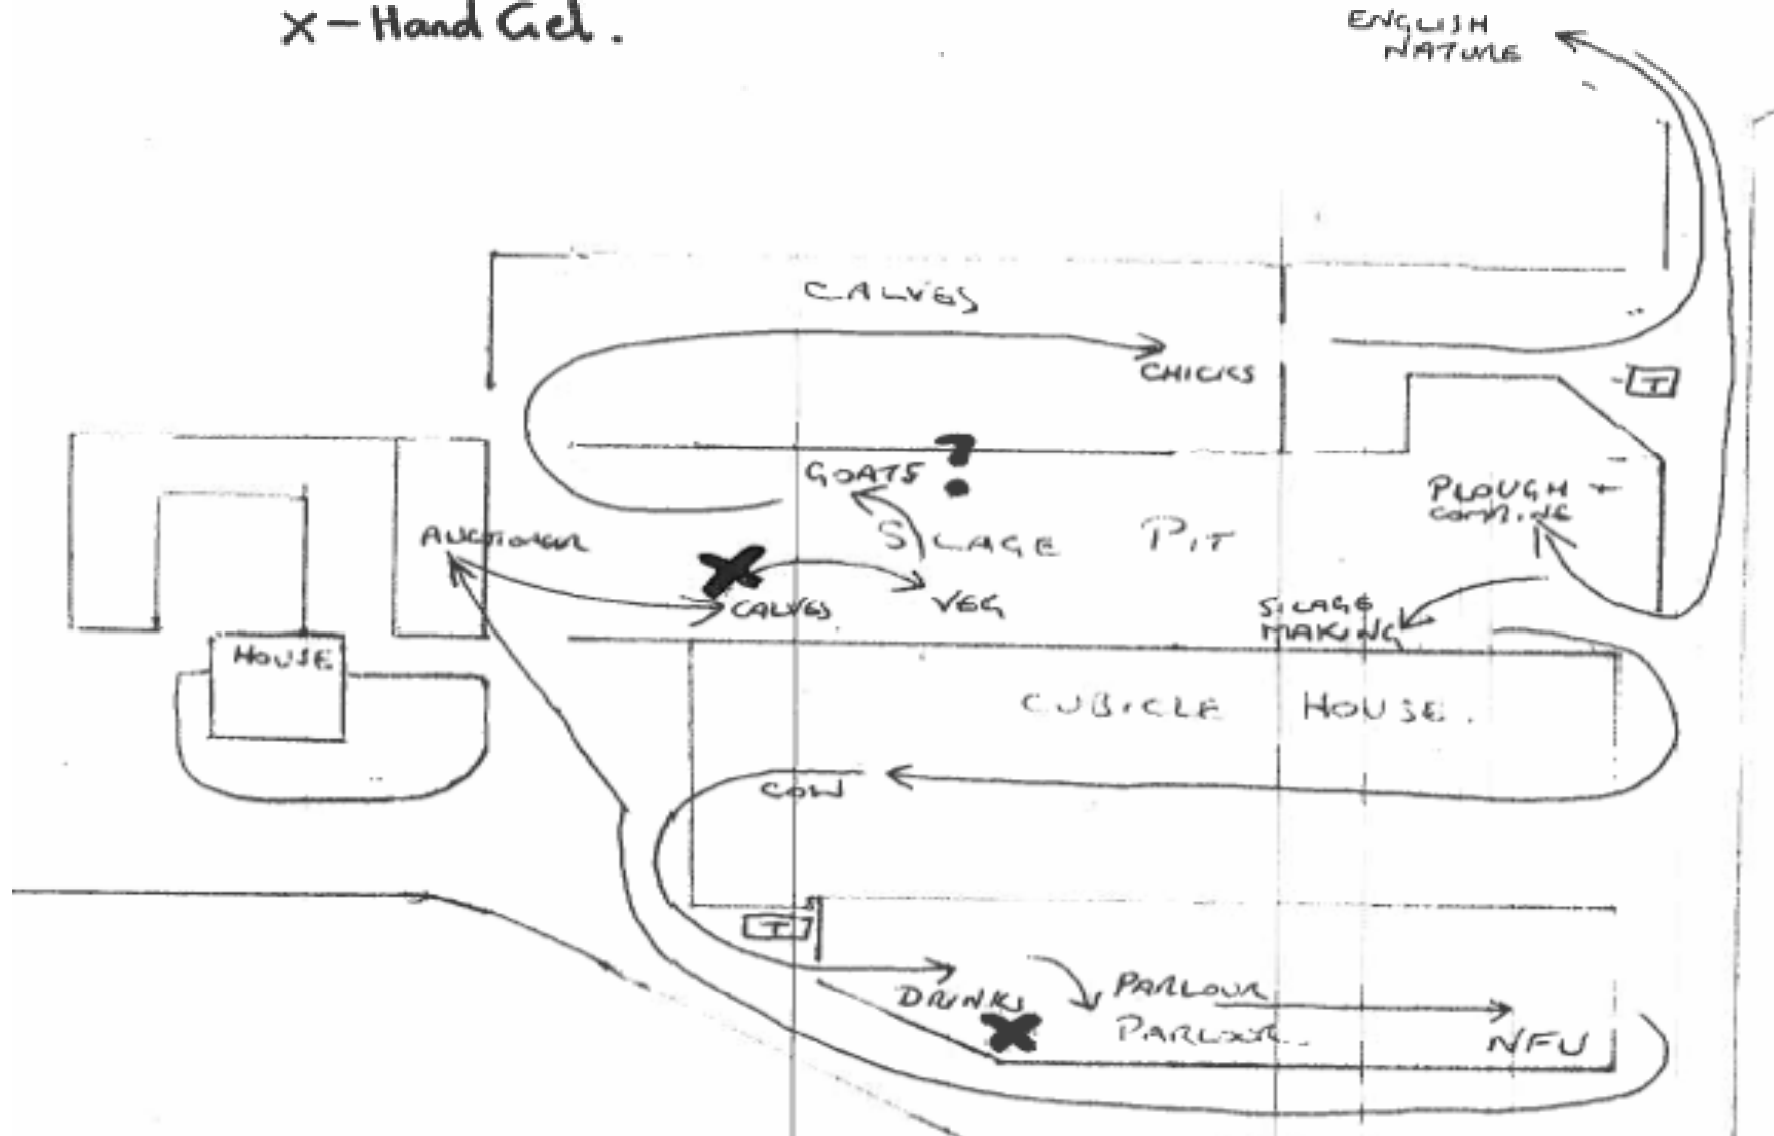 X - Hand Gel.
ENGLISH
NATURE
CALVES
CHICKS
T
GOATS ?
PLOUGH
COMBINE
AUCTIONEER
SILAGE PIT
CALVES
VEG
SILAGE
MAKING
HOUSE
CUBICLE HOUSE.
COW
T
DRINKS
PARLOUR
PARLOUR.
NFU